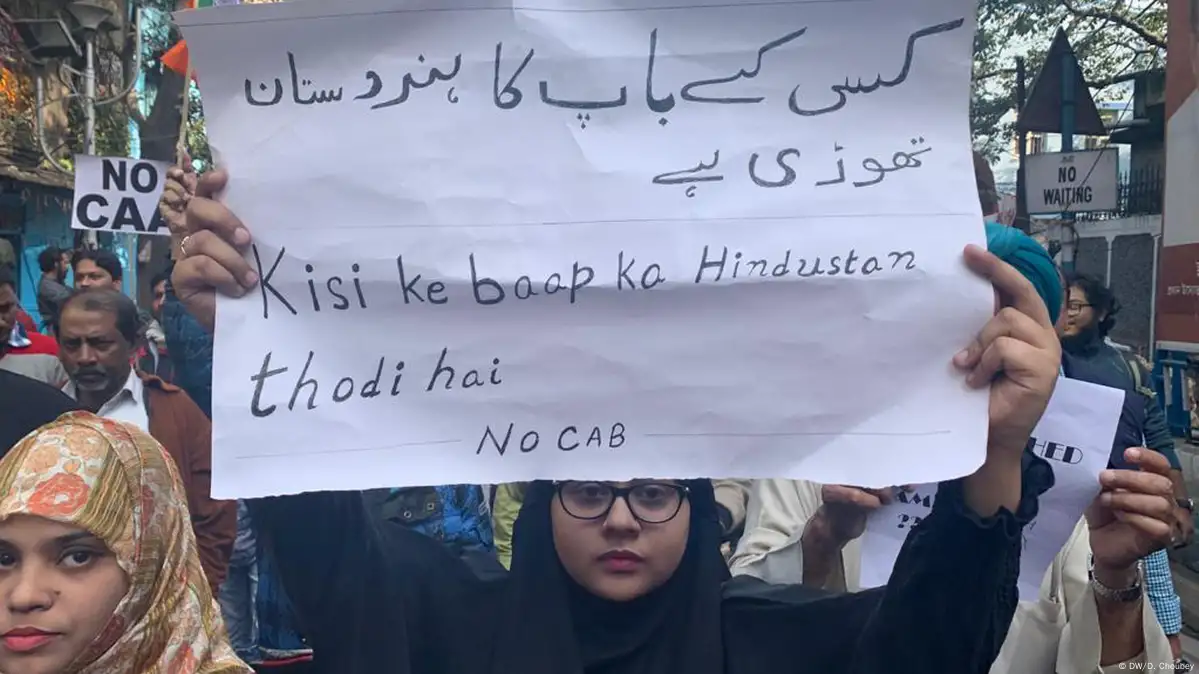 کسی کے باپ کا ہندوستان
تھوڑی ہے
Kisi ke baap ka Hindustan
thodi hai
NO CAB
NO
CAA
NO
WAITING
HED
AM
??
© DW/D. Choubey